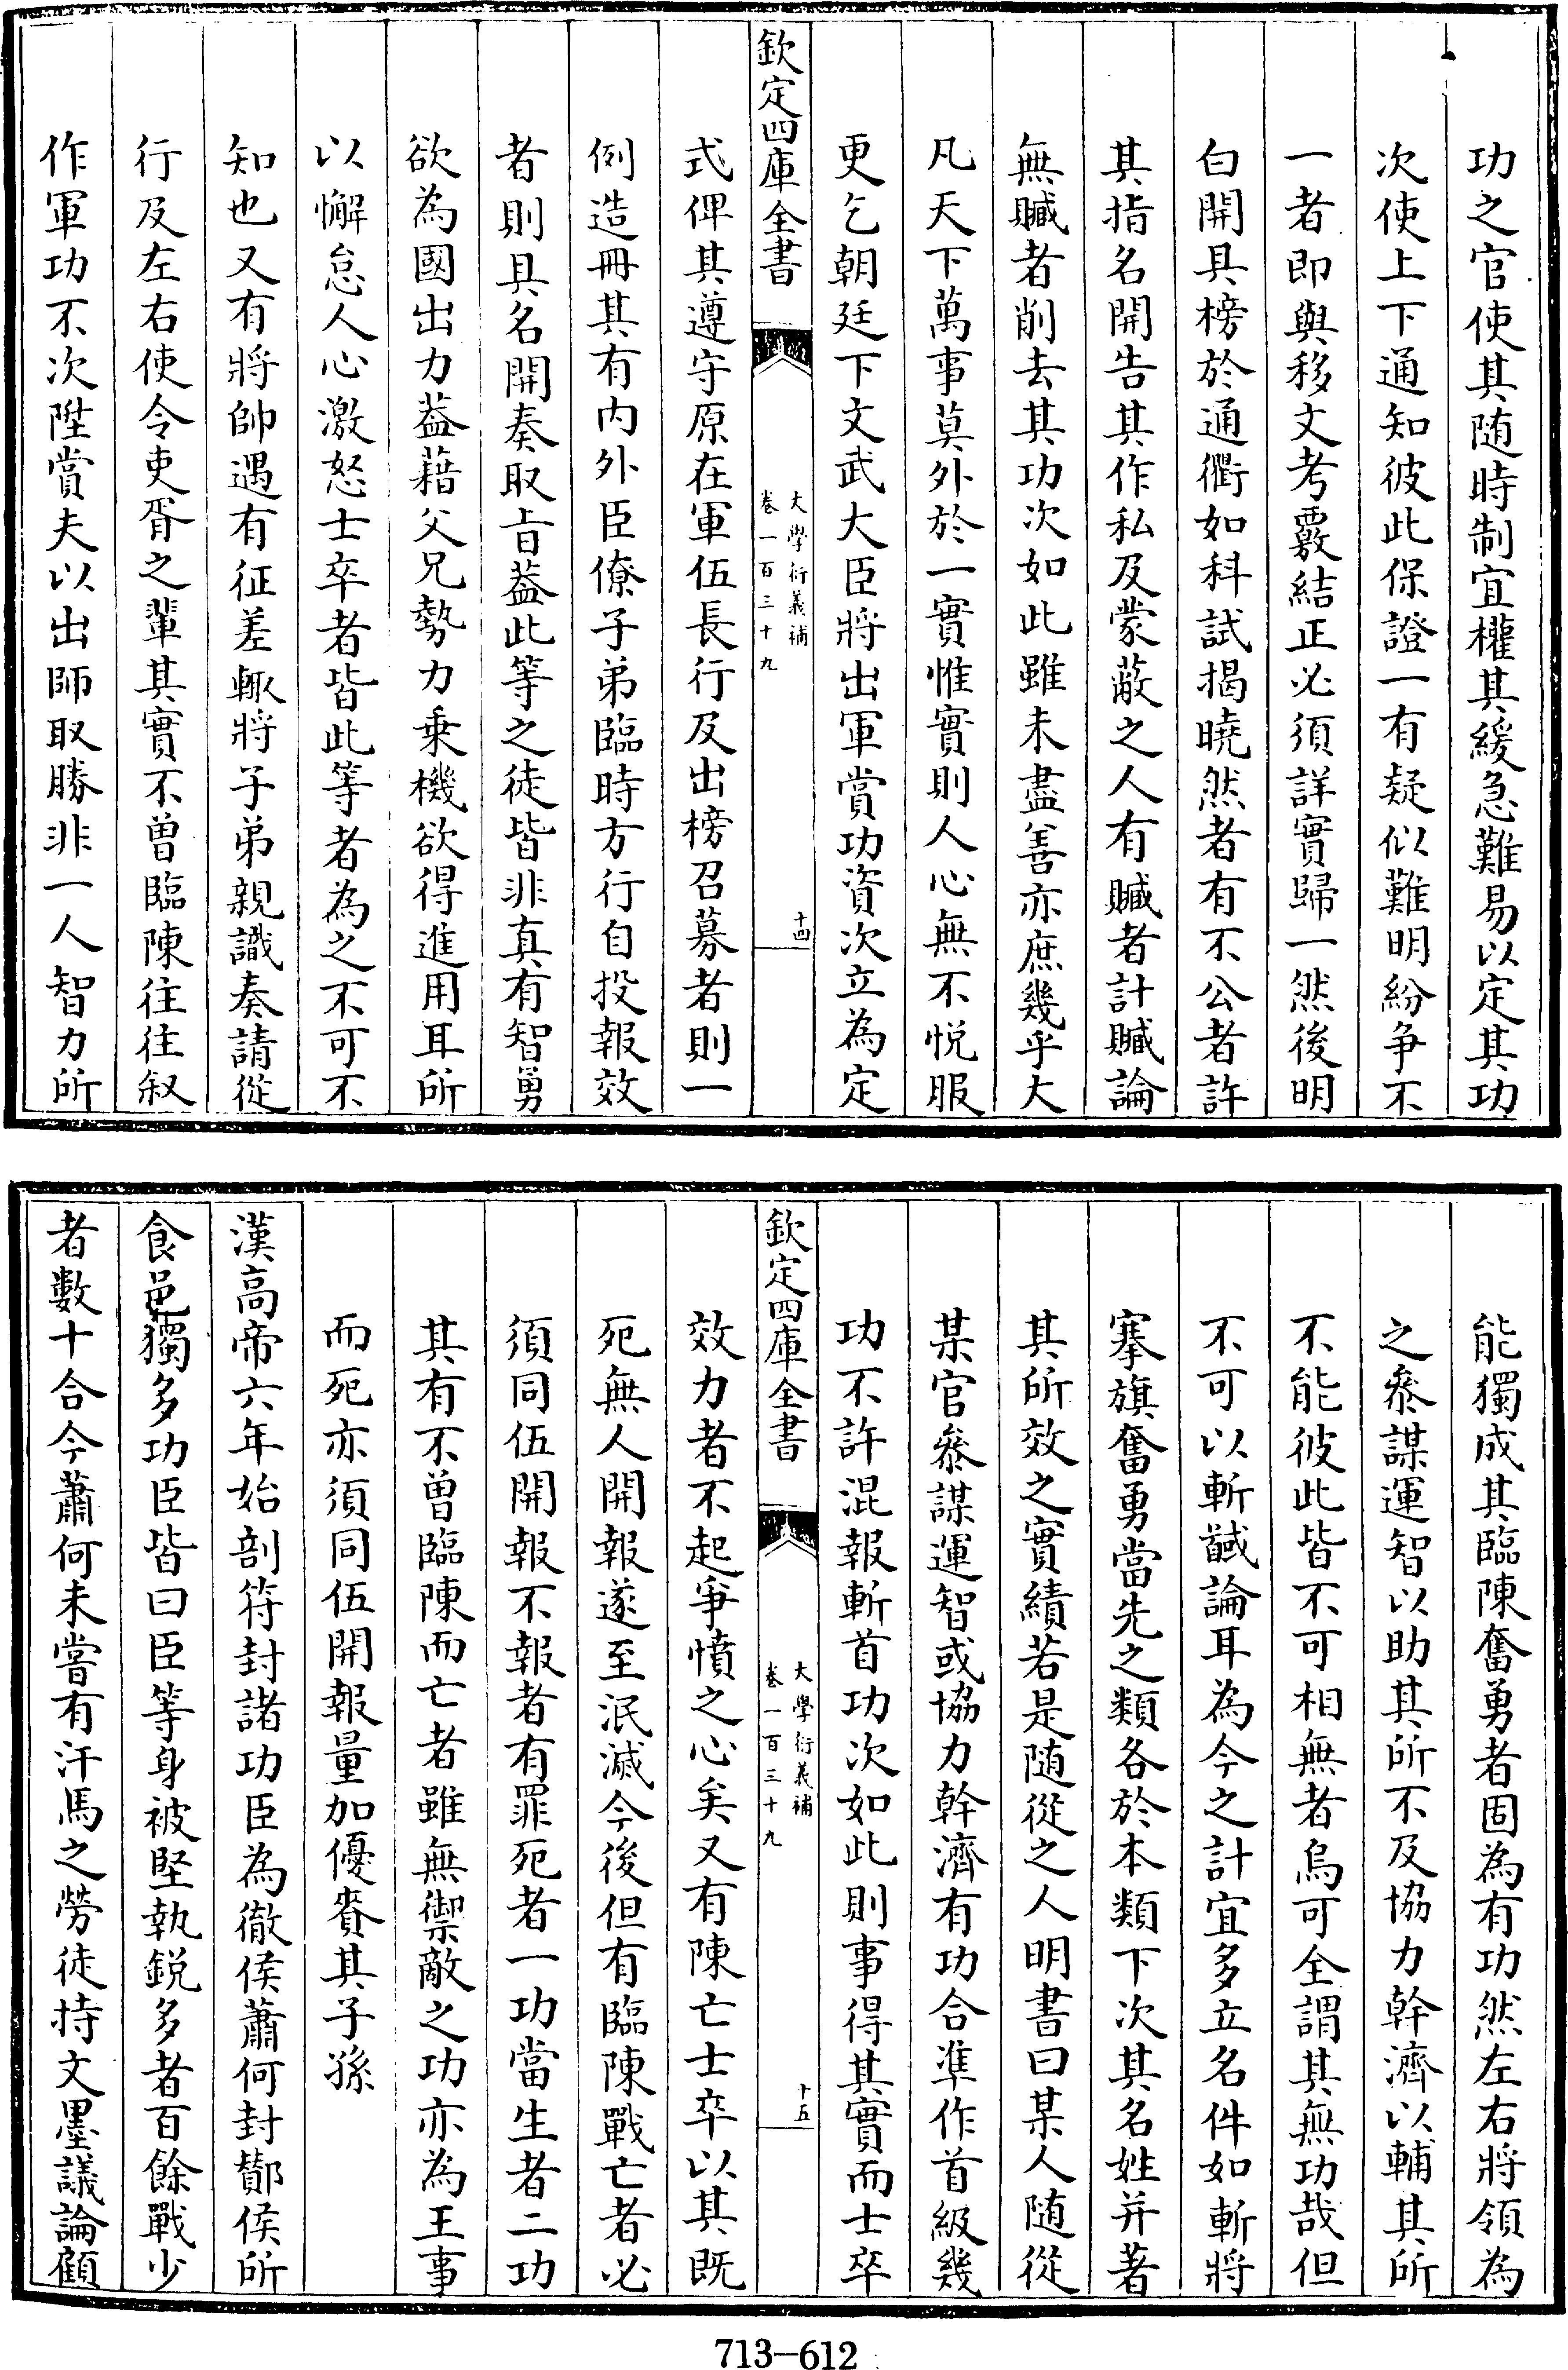 功之官使其随時制宜權其緩急難易以定其功
次使上下通知彼此保證一有疑似難明紛争不
一者即與移文考覈結正必須詳實歸一然後明
白開具榜於通衢如科試揭曉然者有不公者許
其指名開告其作私及蒙蔽之人有贓者計贓論
無贓者削去其功次如此雖未盡善亦庶幾乎大
凡天下萬事莫外於一實惟實則人心無不悦服
更乞朝廷下文武大臣將出軍賞功資次立為定
欽定四庫全書
大學衍義補
卷一百三十九
十四
式俾其遵守原在軍伍長行及出榜召募者則一
例造冊其有内外臣僚子弟臨時方行自投報效
者則具名開奏取旨葢此等之徒皆非真有智勇
欲為國出力葢藉父兄勢力乗機欲得進用耳所
以懈怠人心激怒士卒者皆此等者為之不可不
知也又有將帥遇有征差輙將子弟親識奏請從
行及左右使令吏胥之輩其實不曽臨陳往往叙
作軍功不次陞賞夫以出師取勝非一人智力所
能獨成其臨陳奮勇者固為有功然左右將領為
之叅謀運智以助其所不及協力幹濟以輔其所
不能彼此皆不可相無者烏可全謂其無功哉但
不可以斬馘論耳為今之計宜多立名件如斬將
搴旗奮勇當先之類各於本類下次其名姓并著
其所效之實績若是随從之人明書曰某人随從
某官叅謀運智或協力幹濟有功合準作首級幾
功不許混報斬首功次如此則事得其實而士卒
欽定四庫全書
大學衍義補
卷一百三十九
十五
效力者不起爭憤之心矣又有陳亡士卒以其既
死無人開報遂至泯滅今後但有臨陳戰亡者必
須同伍開報不報者有罪死者一功當生者二功
其有不曽臨陳而亡者雖無禦敵之功亦為王事
而死亦須同伍開報量加優賚其子孫
漢高帝六年始剖符封諸功臣為徹侯蕭何封酇侯所
食邑獨多功臣皆曰臣等身被堅執鋭多者百餘戰少
者數十合今蕭何未嘗有汗馬之勞徒持文墨議論顧
713-612